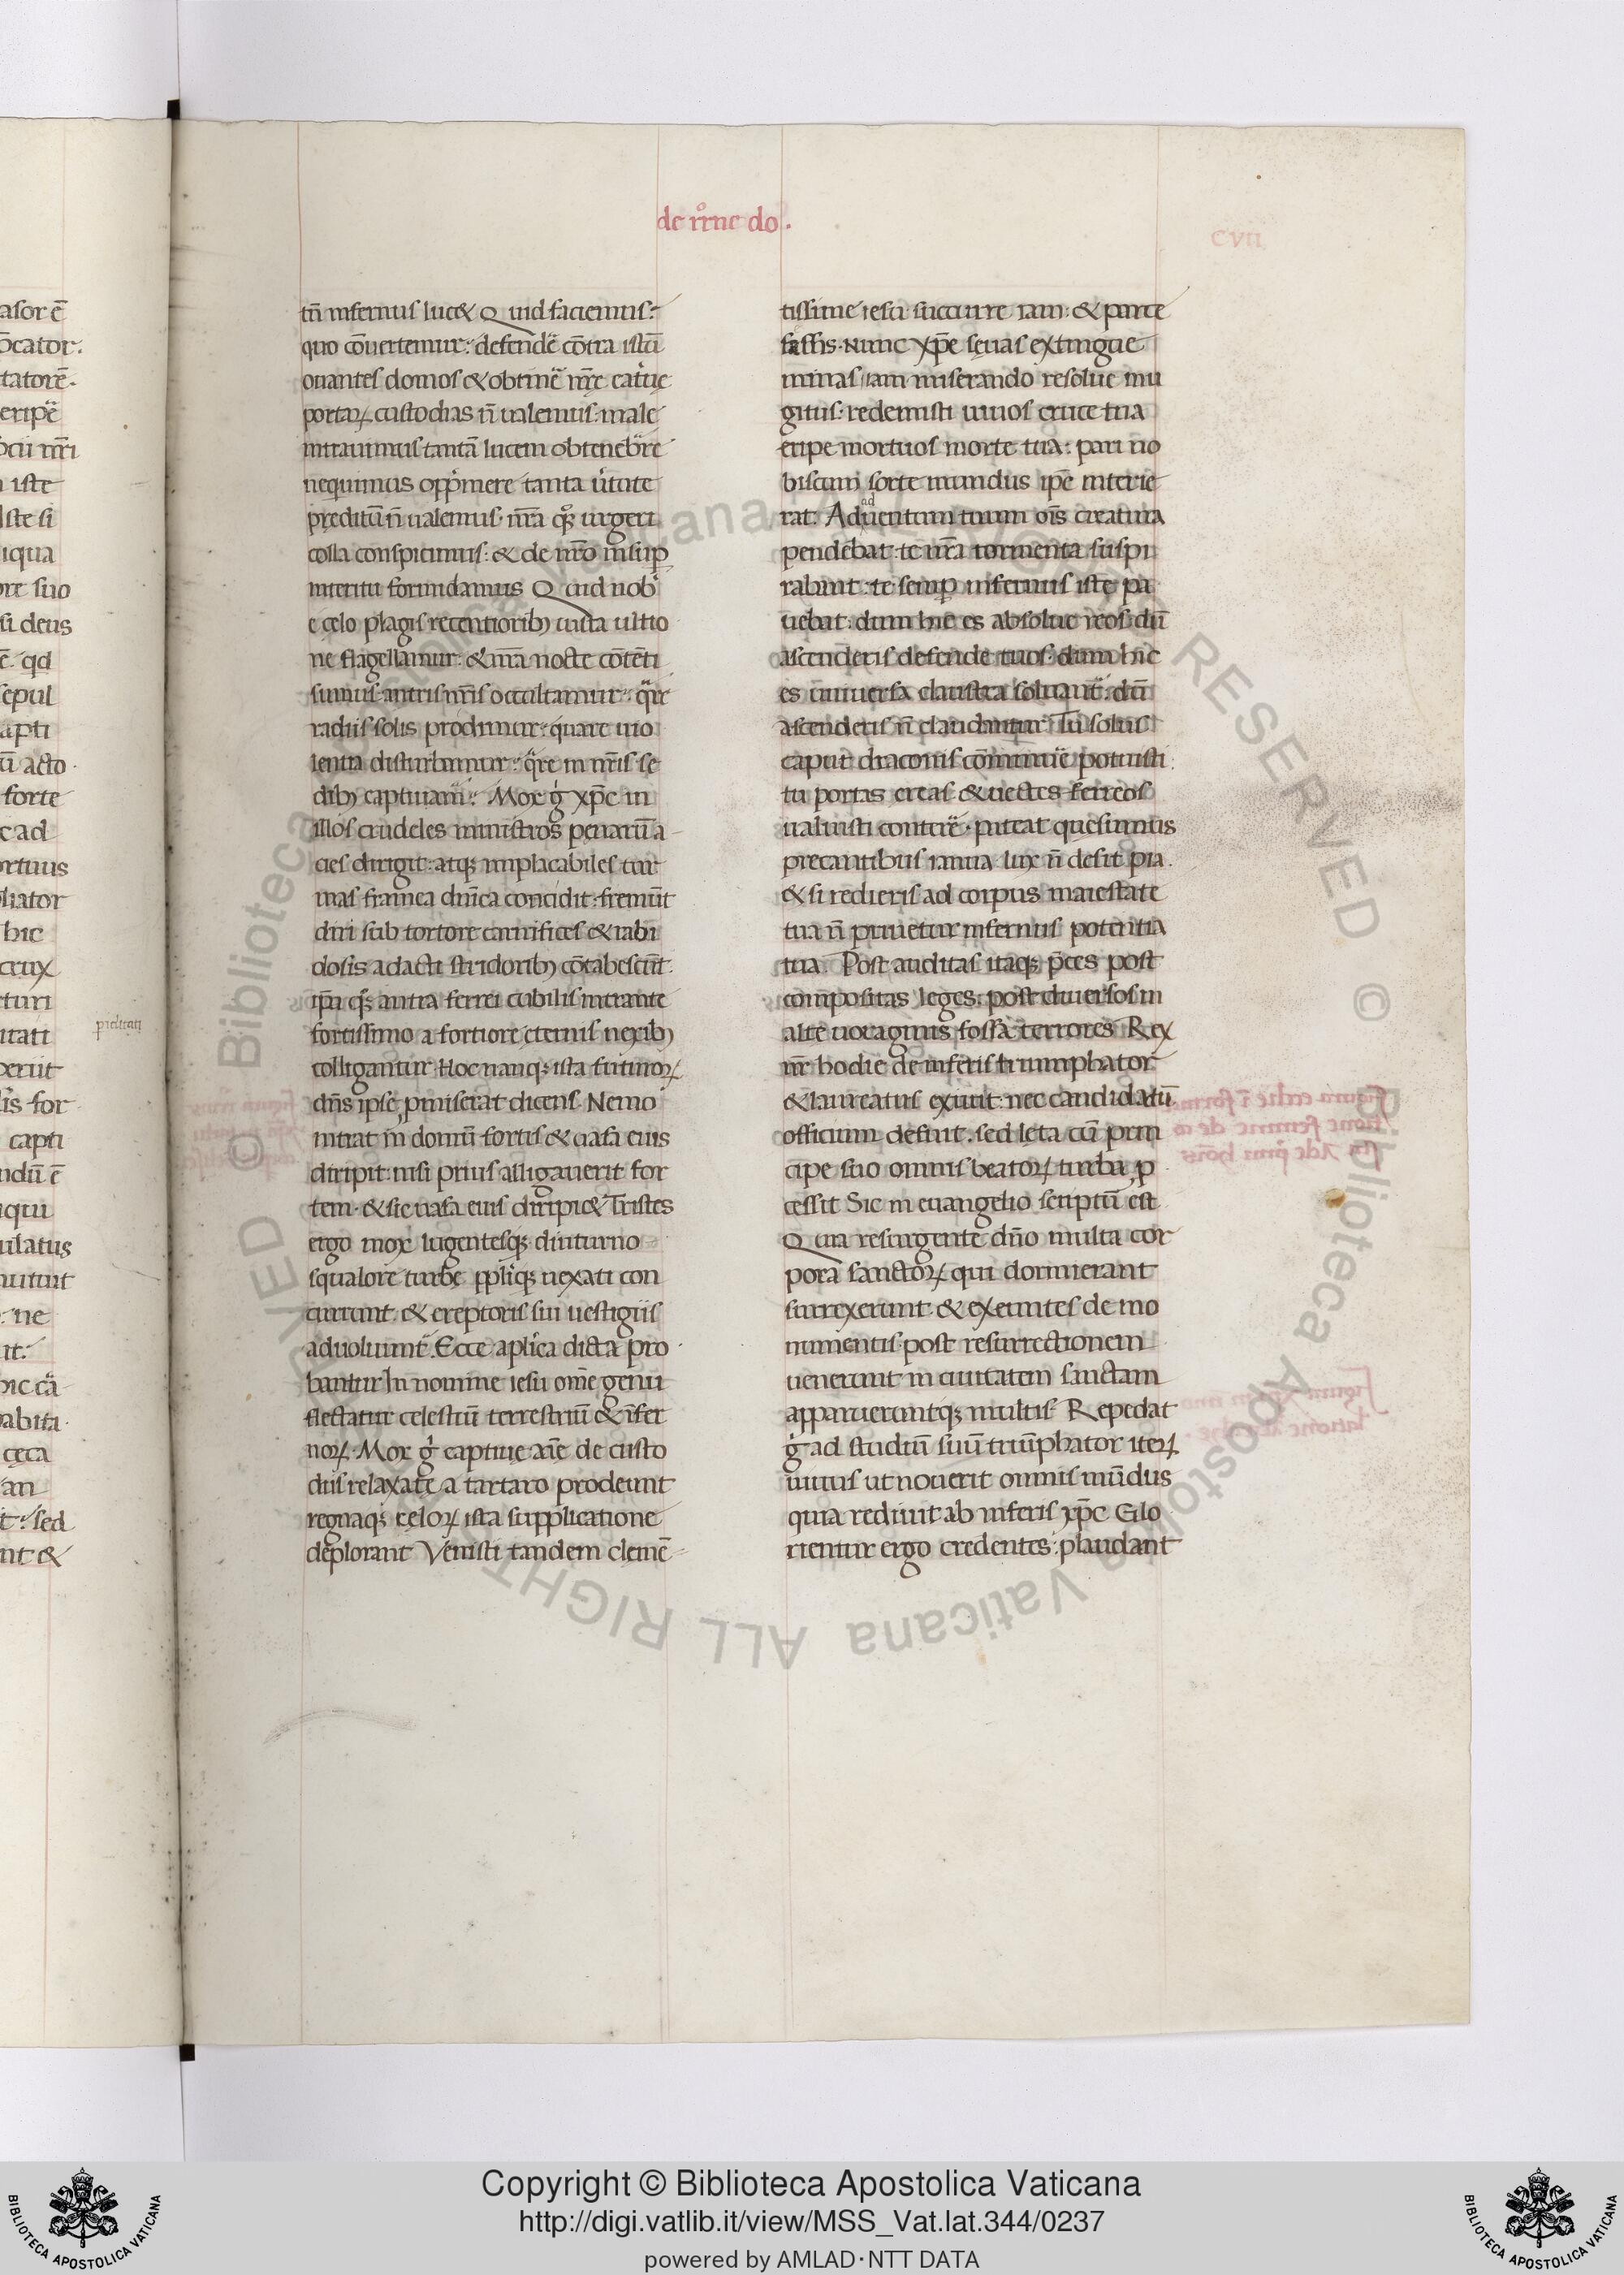 de rr̄ne do.
CVII
tn̄ infernus luc& Quid faciemus?
quo cōuertemur? defendē cōtra istū
ouantes domos & obtinē nr̄e
portaꝝ custodias n̄ ualemus. male
intrauimus tantā lucem obtenebr̄re
nequimus opp̄mere tanta u̓tute
preditū n̄ ualemus. nr̄a urgeri
colla conspicimus: & de nr̄o insup
interitu formidamus Quid nob
e celo plagis recentiorib; iusta ultio
ne flagellamur: & nr̄a nocte cōtēti
sumus. antris nr̄is occultamur? qr̄e
radiis solis prodimur? quare uio
lentia disturbamur? qr̄e in nr̄is se
dib; captiuam̄? Mox g̓ xp̄c in
illos crudeles ministros penarū a
cies dirigit: atq; implacabiles tur
mas framea dn̄ica concidit: fremūt
diri sub tortore carnifices & rabi
dosis adacti stridorib; cōtabescūt.
ip̄a q; antra ferrei cubilis intrante
fortissimo a fortiore eternis nexib;
colligantur. Hoc nanq; ista futuroꝝ
dn̄s ipse p̄miserat dicens. Nemo
intrat in domū fortis & uasa eius
diripit: nisi prius alligauerit for
tem. & sic uasa eius diripi& Tristes
ergo mox lugentesq; diuturno
squalore turbe ppliq; uexati con
currunt. & ereptoris sui uestigiis
aduoluunt̄. Ecce aplica dicta pro
bantur In nomine iesu om̄e genu
flectatur celestiū terrestriū & īfer
noꝝ. Mox g̓ captiue aīe de custo
diis relaxate a tartaro prodeunt
regnaq; celoꝝ ista supplicatione
deplorant Venisti tandem clemē
tissime iesu succurre iam: & parce
fassis. Nunc xp̄e seuas extingue
minas iam miserando resolue mu
gitus. redemisti uiuos cruce tua
eripe mortuos morte tua: pari no
biscum sorte mundus ip̄e interie
rat. Ad aduentum tuum om̄s creatura
pendebat: te nr̄a tormenta suspi
rabant: te semp infernus iste pa
uebat: dum hic es absolue reos: dū
ascenderis defende tuos. dum hic
es uniuersa claustra soluant̄: dū
ascenderis n̄ claudantur Tu solus
caput draconis cōminuē potuisti.
tu portas ereas & uectes ferreos
ualuisti conterē. pateat quesumus
precantibus ianua. lux n̄ desit pia.
& si redieris ad corpus maiestate
tua n̄ priuetur infernus potentia
tua. Post auditas itaq; p̄ces post
compositas leges: post diuersos in
alte uoraginis fossa terrores Rex
nr̄ hodie de inferis triumphator
& laureatus exiuit: nec candidatū
officium defuit. sed leta cū prin
cipe suo omnis beatoꝝ turba p
cessit Sic in euangelio scriptū est
Quia resurgente dn̄o multa cor
pora sanctoꝝ qui dormierant
surrexerunt: & exeuntes de mo
numentis post resurrectionem
uenerunt in ciuitatem sanctam
apparueruntq; multis. Repedat
g̓ ad studiū suū triūphator iteꝝ
uiuus ut nouerit omnis mūdus
quia rediuit ab inferis xp̄c Glo
rientur ergo credentes: plaudant
Copyright © Biblioteca Apostolica Vaticana
http://digi.vatlib.it/view/MSS_Vat.lat.344/0237
powered by AMLAD·NTT DATA